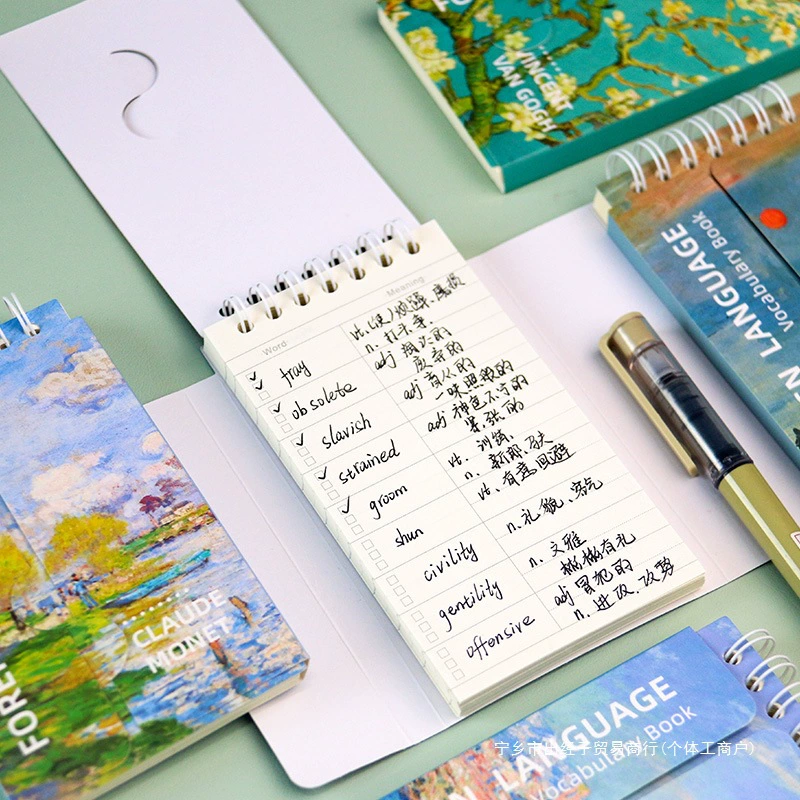 VINCENT
VAN GOGH
EN LANGUAGE
Vocabulary Book
Word
Meaning
fray
vt.(使)烦躁,磨损
n. 打斗,争
obsolete
adj 淘汰的
废弃的
slavish
adj 盲从的
一味照搬的
strained
adj 神色不宁的
紧张的
groom
vt. 训练,
n. 新郎,
shun
vt. 有意回避
civility
n. 礼貌、客气
gentility
n. 文雅
彬彬有礼
offensive
adj 冒犯的
n. 进攻. 攻势
CLAUDE
MONET
FORE
N LANGUAGE
Vocabulary Book